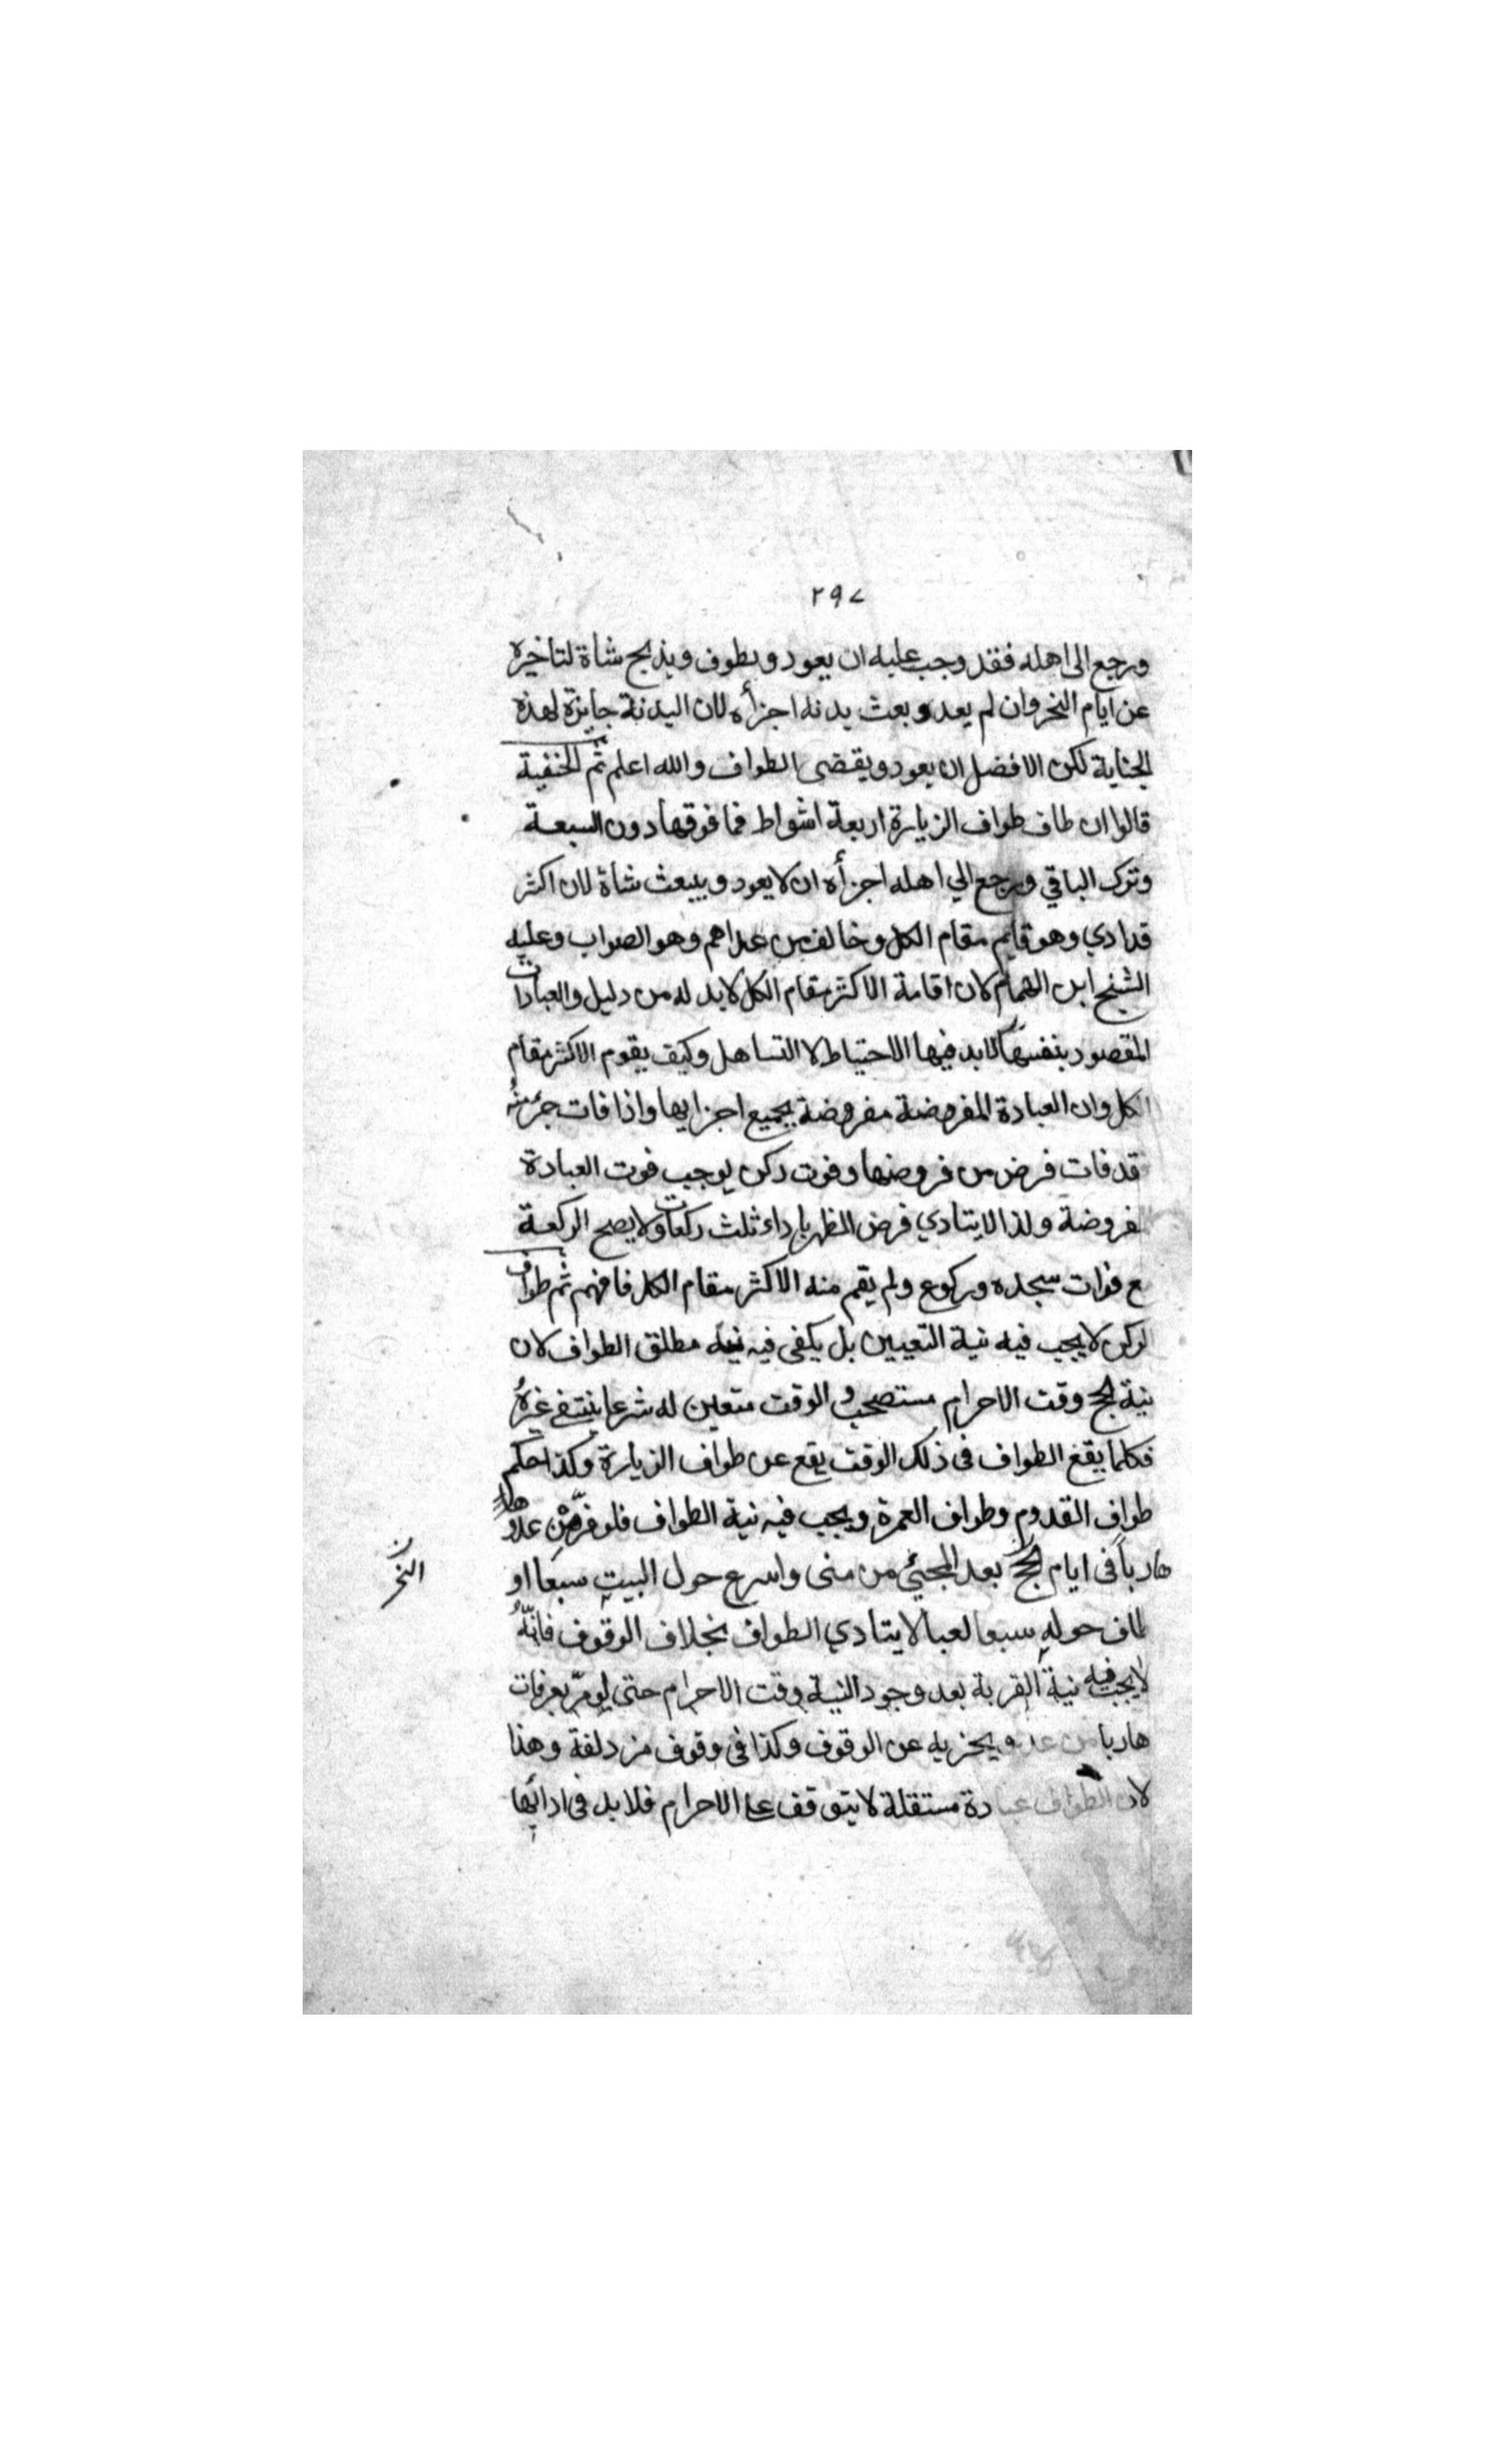 ٢٩٧
ورجع الى اهله فقد وجب عليه ان يعود ويطوف ويذبح شاة لتاخيره
عن ايام النحر وان لم يعد وبعث بدنه اجزأه لان البدنة جايزة لهذه
الجناية لكن الافضل ان يعود ويقضى الطواف والله اعلم ثم الحنفية
قالوا ان طاف طواف الزيارة اربعة اشواط فما فوقها دون السبعة
وترك الباقي ورجع الي اهله اجزأه ان لا يعود ويبعث شاة لان اكثر
قد ادي وهو قايم مقام الكل وخالف من عداهم وهو الصواب وعليه
الشيخ ابن الهمام لان اقامة الاكثر مقام الكل لابد له من دليل والعبادات
المقصود بنفسها لابد فيها الاحتياط لا التساهل وكيف يقوم الاكثر مقام
الكل وان العبادة المفروضة مفروضة بجميع اجزايها واذا فات جزء منه
قد فات فرض من فروضها وفوت ركن يوجب فوت العبادة
مفروضة ولذا لا يتادي فرض الظهر باداء ثلث ركعات ولا يصح الركعة
مع فوات سجده وركوع ولم يقم منه الاكثر مقام الكل فافهم ثم طواف
الركن لا يجب فيه نية التعيين بل يكفى فيه نية مطلق الطواف لان
نية الحج وقت الاحرام مستصحب و الوقت متعين له شرعا ينتفي غيره
فكلما يقع الطواف فى ذلك الوقت يقع عن طواف الزيارة وكذا حكم
طواف القدوم وطواف العمرة ويجب فيه نية الطواف فلو فر من عدو
هاربا فى ايام الحج بعد المجئي من منى واسرع حول البيت سبعا او
النحر
طاف حوله سبعا لعبا لا يتادي الطواف بخلاف الوقوف فانه
لا يجب فيه نية القربة بعد وجود النية وقت الاحرام حتى لو مر بعرفات
هاربا من عدو يجزيه عن الوقوف وكذا فى وقوف مزدلفة وهذا
لان الطواف عبادة مستقلة لا يتوقف على الاحرام فلابد فى ادائها